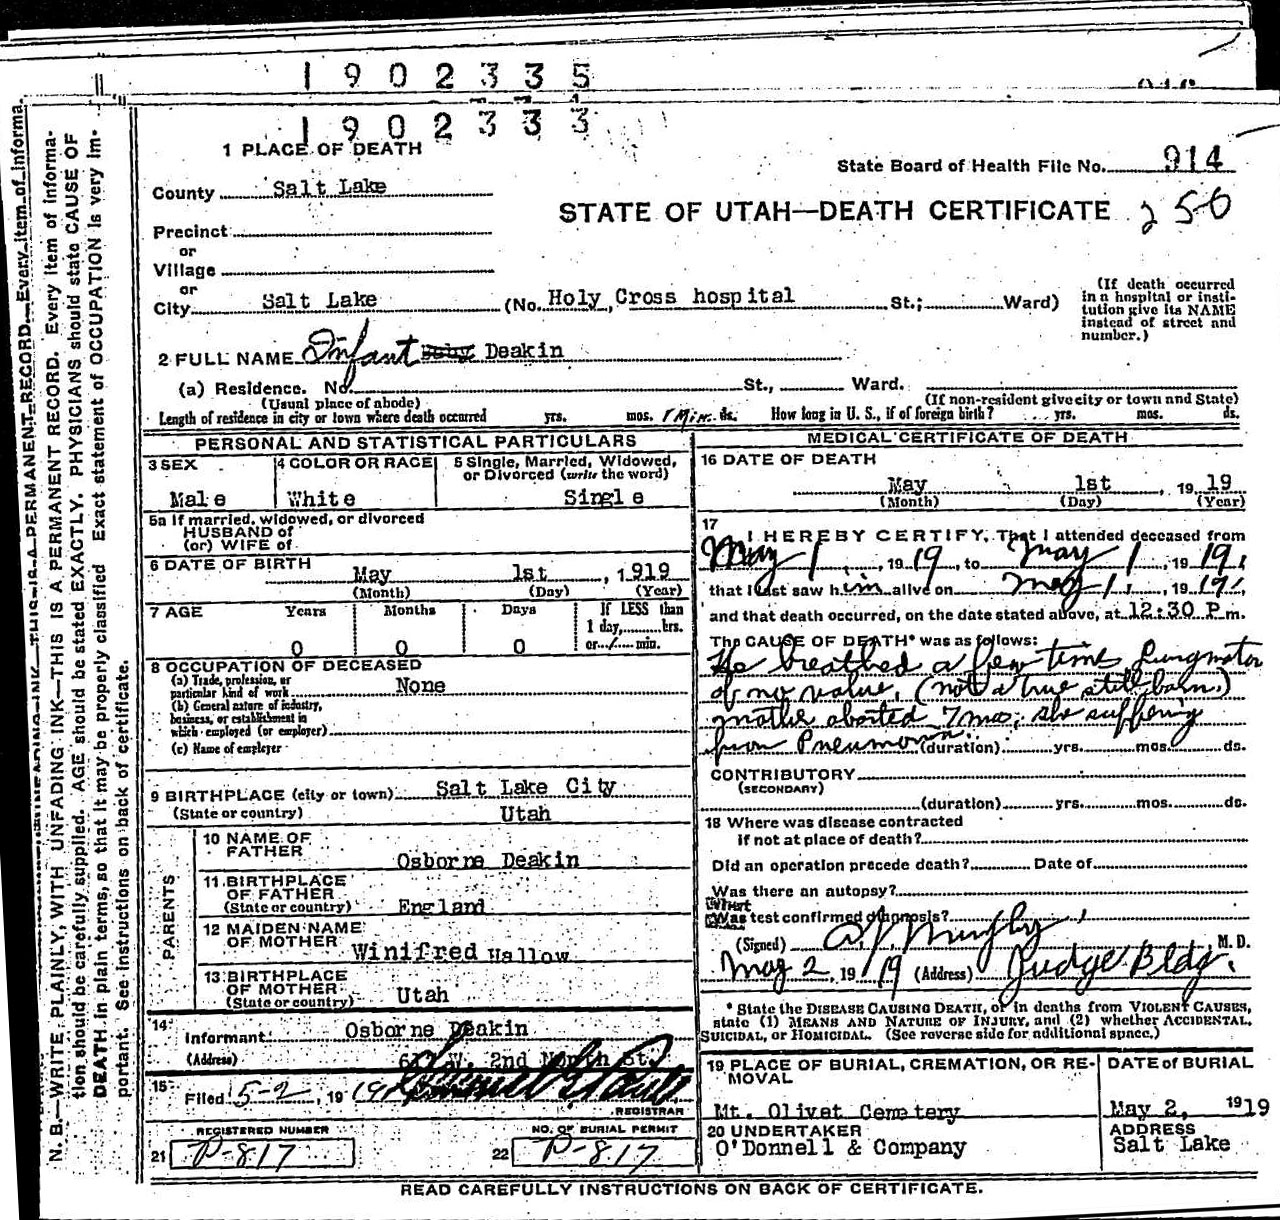 1902335
1902333
1 PLACE OF DEATH
State Board of Health File No. 914
County Salt Lake
STATE OF UTAH—DEATH CERTIFICATE 250
Precinct
or
Village
or
City Salt Lake (No. Holy Cross hospital St.; Ward)
(If death occurred in a hospital or institution give its NAME instead of street and number.)
2 FULL NAME Infant Baby Deakin
(a) Residence. No. St., Ward.
(Usual place of abode) (If non-resident give city or town and State)
Length of residence in city or town where death occurred yrs. mos. 1 Min. ds. How long in U. S., if of foreign birth? yrs. mos. ds.
PERSONAL AND STATISTICAL PARTICULARS
3 SEX 4 COLOR OR RACE 5 Single, Married, Widowed, or Divorced (write the word)
Male White Single
5a If married, widowed, or divorced
HUSBAND of
(or) WIFE of
6 DATE OF BIRTH
May 1st, 1919
(Month) (Day) (Year)
7 AGE Years Months Days If LESS than
1 day, hrs.
0 0 0 or 1 min.
8 OCCUPATION OF DECEASED
(a) Trade, profession, or
particular kind of work None
(b) General nature of industry,
business, or establishment in
which employed (or employer)
(c) Name of employer
9 BIRTHPLACE (city or town) Salt Lake City
(State or country) Utah
PARENTS
10 NAME OF
FATHER Osborne Deakin
11 BIRTHPLACE
OF FATHER
(State or country) England
12 MAIDEN NAME
OF MOTHER Winifred Hallow
13 BIRTHPLACE
OF MOTHER
(State or country) Utah
14
Informant Osborne Deakin
(Address) W. 2nd North St.
15
Filed 5-2, 1919
REGISTRAR
REGISTERED NUMBER NO. OF BURIAL PERMIT
21 P-817 22 P-817
MEDICAL CERTIFICATE OF DEATH
16 DATE OF DEATH
May 1st, 1919
(Month) (Day) (Year)
17
I HEREBY CERTIFY, That I attended deceased from
May 1, 1919, to May 1, 1919,
that I last saw him alive on May 1, 1919,
and that death occurred, on the date stated above, at 12:30 P.m.
The CAUSE OF DEATH* was as follows:
He breathed a few times, Lungmotor
of no value. (not a true stillborn.)
mother aborted 7 mos; she suffering
from Pneumonia. (duration) yrs. mos. ds.
CONTRIBUTORY
(SECONDARY)
(duration) yrs. mos. ds.
18 Where was disease contracted
if not at place of death?
Did an operation precede death? Date of
Was there an autopsy?
What
Was test confirmed diagnosis?
(Signed) Murphy, M. D.
May 2, 1919 (Address) Judge Bldg.
* State the DISEASE CAUSING DEATH, or in deaths from VIOLENT CAUSES,
state (1) MEANS AND NATURE OF INJURY, and (2) whether ACCIDENTAL,
SUICIDAL, or HOMICIDAL. (See reverse side for additional space.)
19 PLACE OF BURIAL, CREMATION, OR RE-
MOVAL
Mt. Olivet Cemetery
DATE OF BURIAL
May 2, 1919
20 UNDERTAKER
O'Donnell & Company
ADDRESS
Salt Lake
READ CAREFULLY INSTRUCTIONS ON BACK OF CERTIFICATE.
N. B.—WRITE PLAINLY, WITH UNFADING INK—THIS IS A PERMANENT RECORD. Every item of informa-
tion should be carefully supplied. AGE should be stated EXACTLY. PHYSICIANS should state CAUSE OF
DEATH in plain terms, so that it may be properly classified. Exact statement of OCCUPATION is very im-
portant. See instructions on back of certificate.